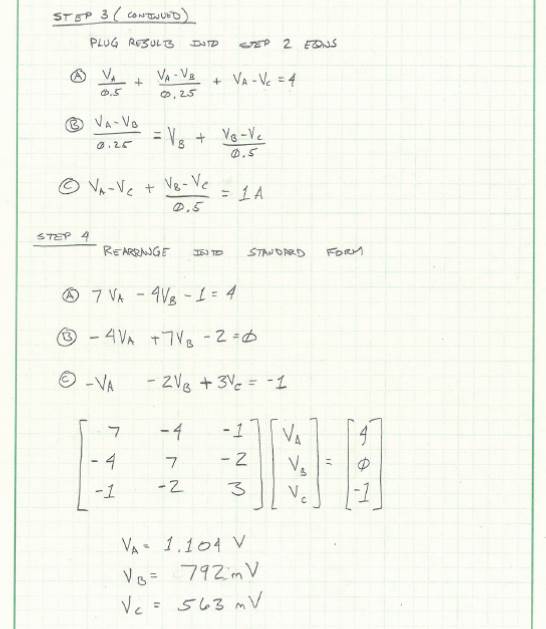 STEP 3 (CONTINUED)
PLUG RESULTS INTO STEP 2 EQNS
Ⓐ V_A/0.5 + V_A-V_B/0.25 + V_A-V_C = 4
Ⓑ V_A-V_B/0.25 = V_B + V_B-V_C/0.5
Ⓒ V_A-V_C + V_B-V_C/0.5 = 1A
STEP 4
REARRANGE INTO STANDARD FORM
Ⓐ 7V_A - 4V_B - 1 = 4
Ⓑ -4V_A + 7V_B - 2 = 0
Ⓒ -V_A - 2V_B + 3V_C = -1
[ 7 -4 -1 ] [ V_A ] = [ 4 ]
[ -4 7 -2 ] [ V_B ] = [ 0 ]
[ -1 -2 3 ] [ V_C ] = [ -1 ]
V_A = 1.104 V
V_B = 792 mV
V_C = 563 mV